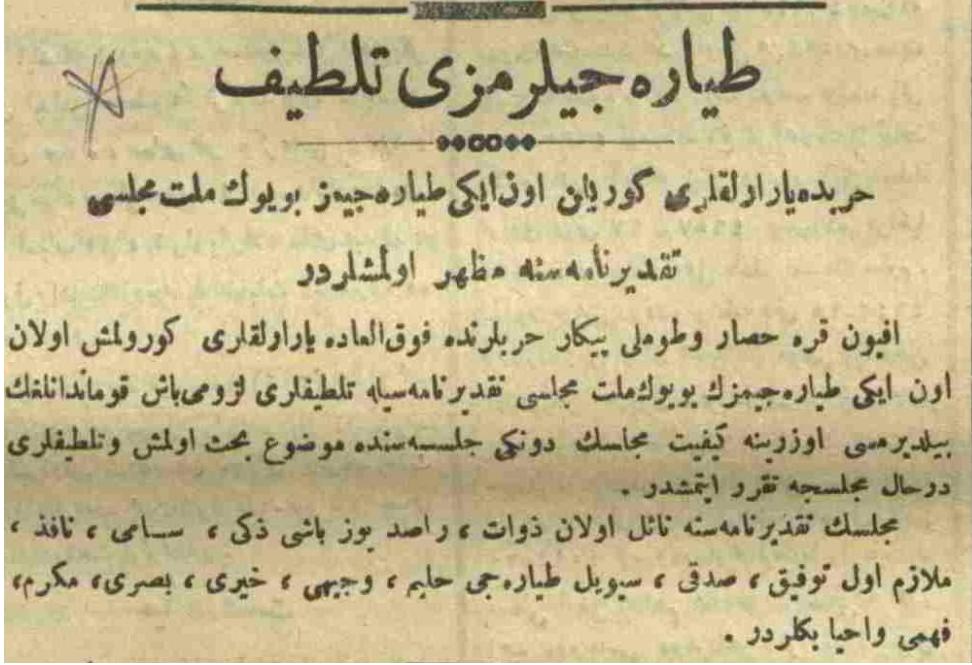 طياره جيلرمزى تلطيف
حربده يارارلقلرى گوريلن اون ايكى طياره جيمز بويوك ملت مجلسى
تقديرنامه سنه مظهر اولمشلردر
افيون قره حصار وطوملى پيكار حربلرنده فوق العاده يارارلقلرى كورولمش اولان
اون ايكى طياره جيمزك بويوك ملت مجلسى تقديرنامه سيله تلطيفلرى لزومى باش قوماندانلغك
بيلديرمسى اوزرينه كيفيت مجلسك دونكى جلسه سنده موضوع بحث اولمش وتلطيفلرى
درحال مجلسجه تقرر ايتمشدر .
مجلسك تقديرنامه سنه نائل اولان ذوات ، راصد يوز باشى ذكى ، سامى ، نافذ ،
ملازم اول توفيق ، صدقى ، سيويل طياره جى حليم ، وجيهى ، خيرى ، بصرى ، مكرم ،
فهمى واحيا بكلردر .